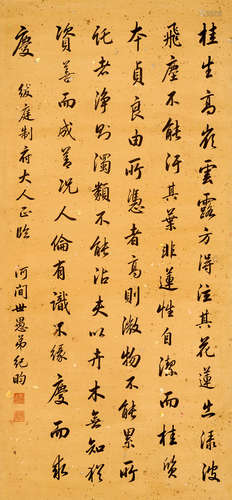 桂生高嶺雲露方得泫其花蓮出淥波
飛塵不能汙其葉非蓮性自潔而桂質
本貞良由所憑者高則微物不能累所
託者淨則濁類不能沾夫以卉木無知猶
資善而成善況人倫有識不緣慶而求
慶
紱庭制府大人正臨
河間世愚弟紀昀